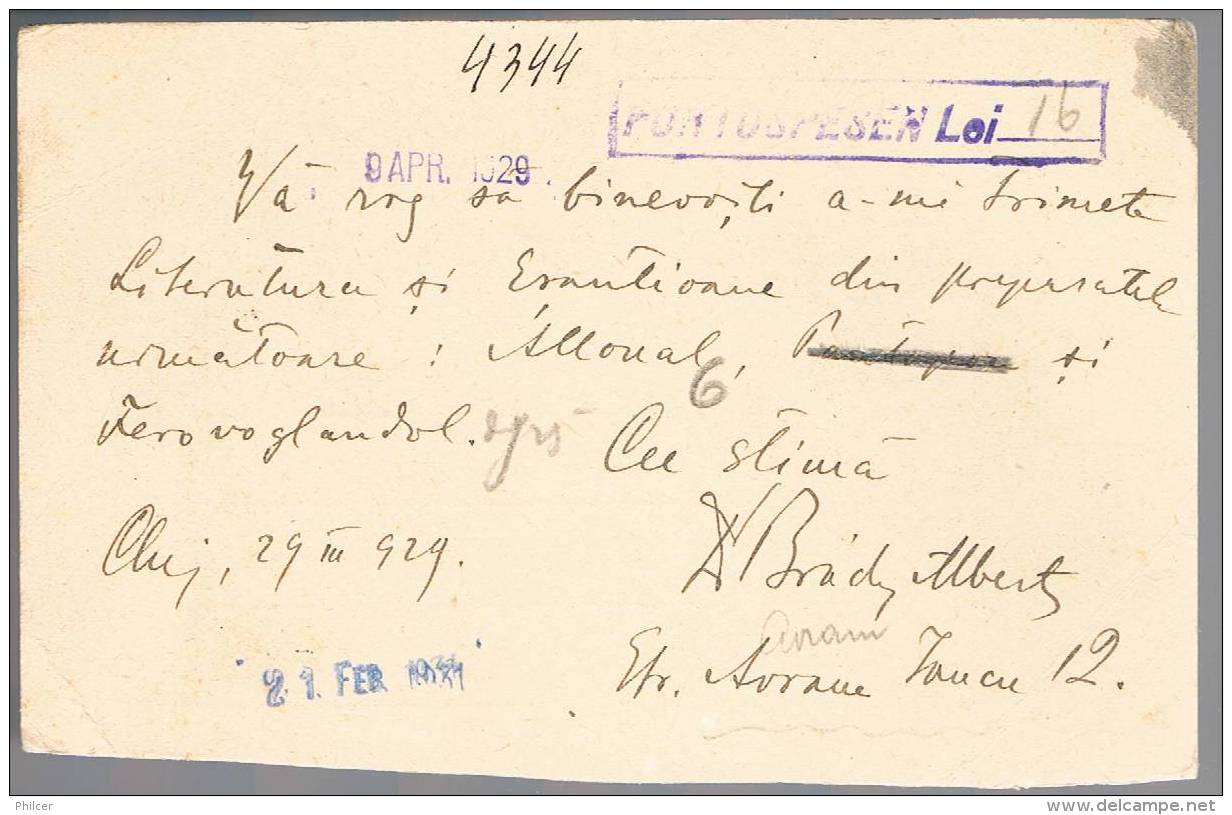 4344
PORTOSPESEN Lei 16
9 APR. 1929.
Vă rog să binevoiți a-mi trimete
Literatura și Eșantioane din preparatele
următoare : Allonal, și
6
Ferovoglandol.
Cu stimă
Cluj, 29 III 929.
Dr Brády Albert
Avram
Str. Avram Iancu 12.
21 FEB
Philcer
www.delcampe.net